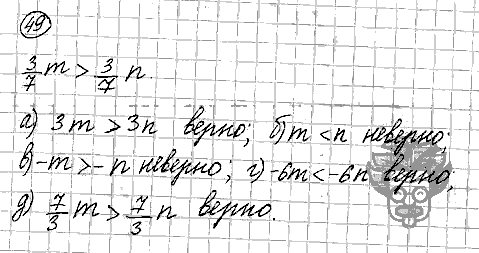 49
3/7 m > 3/7 n.
а) 3m > 3n верно; б) m < n неверно;
в) -m > -n неверно; г) -6m < -6n верно;
д) 7/3 m > 7/3 n верно.